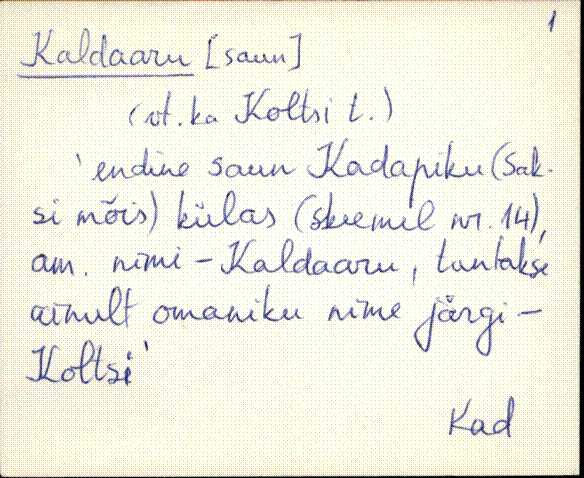 1
Kaldaaru [saun]
(vt. ka Koltsi t.)
'endine saun Kadapiku (Sak-
si mõis) külas (skeemil nr. 14),
am. nimi - Kaldaaru, tuntakse
ainult omaniku nime järgi -
Koltsi'
Kad